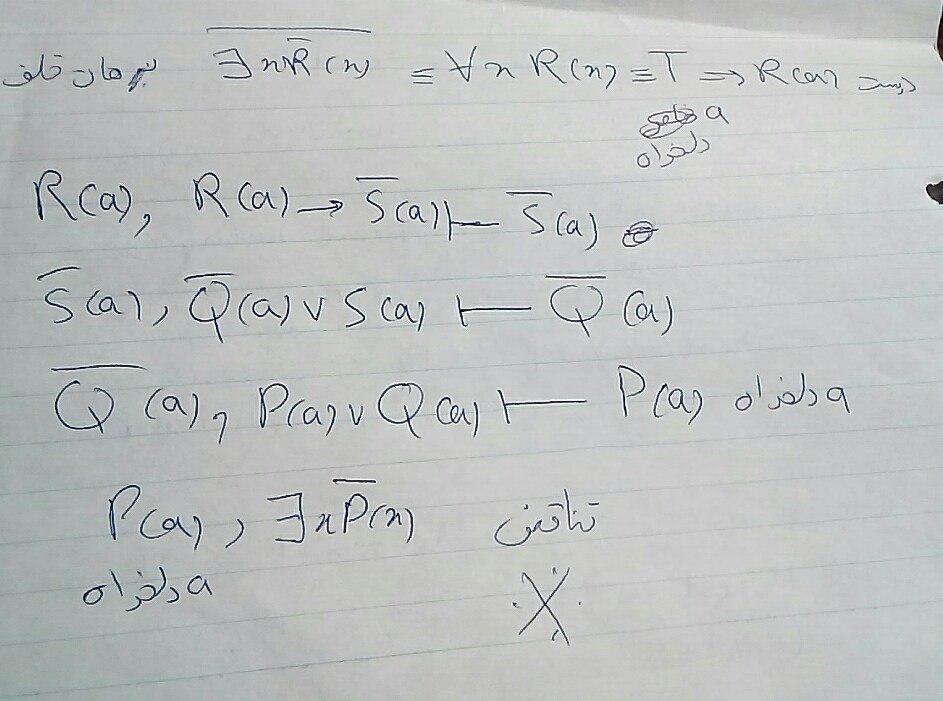 برهان خلف $\overline{\exists x \overline{R}(x)} \equiv \forall x R(x) \equiv T \Rightarrow R(a)$ درست
a
دلخواه
$R(a), R(a) \rightarrow \overline{S}(a) \vdash \overline{S}(a)$
$\overline{S}(a), \overline{Q}(a) \vee S(a) \vdash \overline{Q}(a)$
$\overline{Q}(a), P(a) \vee Q(a) \vdash P(a)$ a دلخواه
$P(a), \exists x \overline{P}(x)$ تناقض
a دلخواه